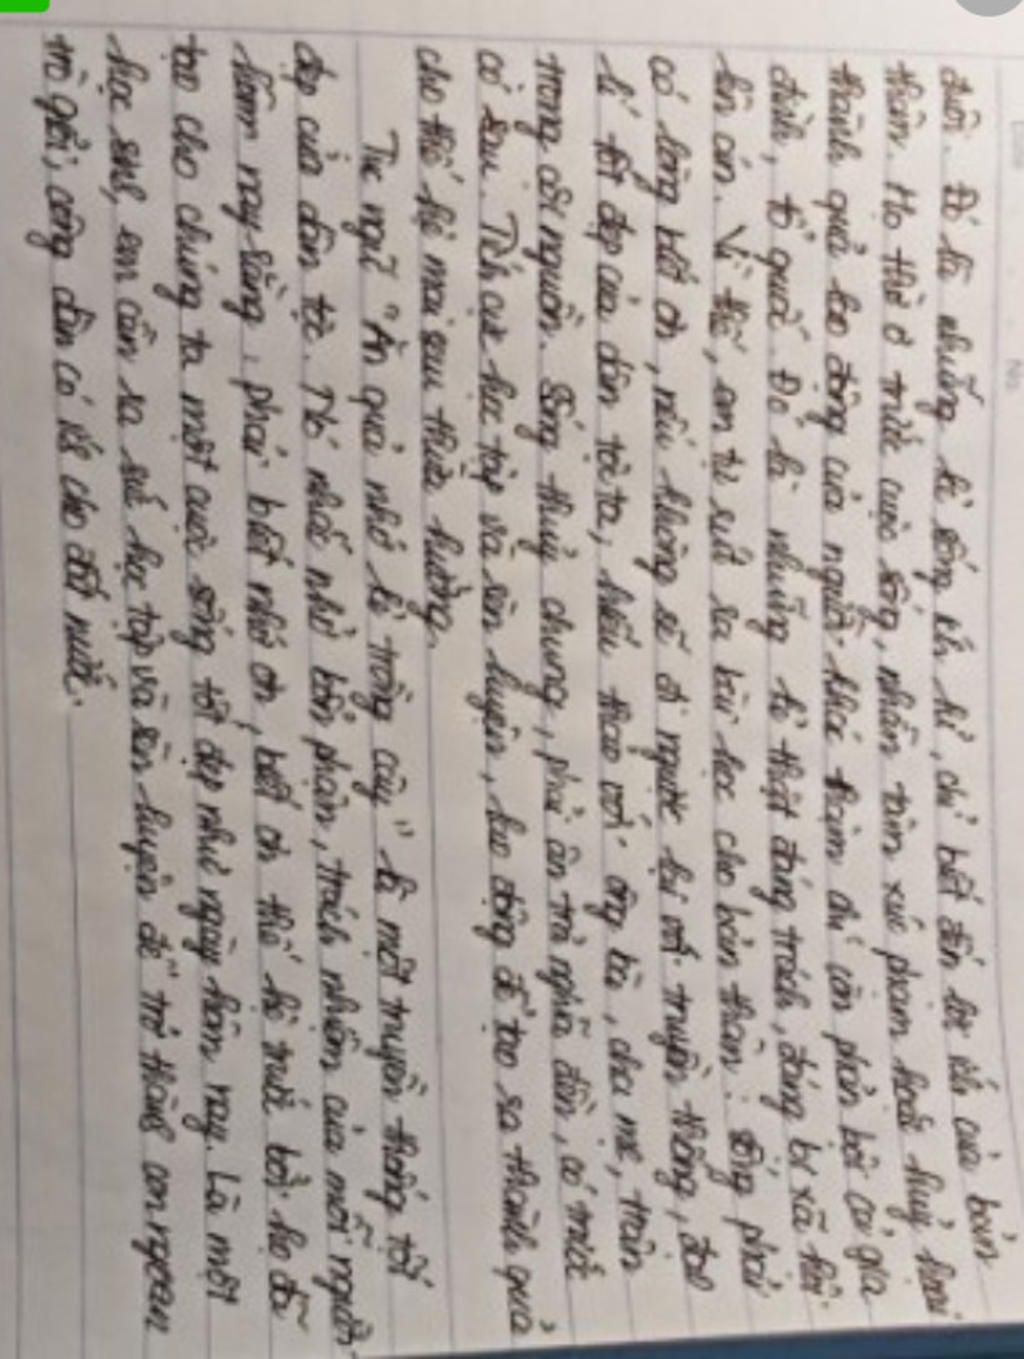 đuôi. Đó là những kẻ sống ích kỉ, chỉ biết đến lợi ích của bản
thân. Họ thờ ơ trước cuộc sống, nhẫn tâm xúc phạm hoặc huỷ hoại
thành quả lao động của người khác thậm chí còn phản bội cả gia
đình, tổ quốc. Đó là những kẻ thật đáng trách, đáng bị xã hội
lên án. Vì thế, em tự rút ra bài học cho bản thân: sống phải
có lòng biết ơn, nếu không sẽ đi ngược lại với truyền thống, đạo
lí tốt đẹp của dân tộc ta, hiếu thảo với ông bà, cha mẹ, trân
trọng cội nguồn. Sống thuỷ chung, phải ân trả nghĩa đền, có trước
có sau. Tích cực học tập và rèn luyện, lao động để tạo ra thành quả
cho thế hệ mai sau thừa hưởng.
Tục ngữ "Ăn quả nhớ kẻ trồng cây" là một truyền thống tốt
đẹp của dân tộc. Nó nhắc nhở bổn phận, trách nhiệm của mỗi người
hôm nay rằng, phải biết nhớ ơn, biết ơn thế hệ trước bởi họ đã
tạo cho chúng ta một cuộc sống tốt đẹp như ngày hôm nay. Là một
học sinh, em cần ra sức học tập và rèn luyện để trở thành con ngoan
trò giỏi, công dân có ích cho đất nước.